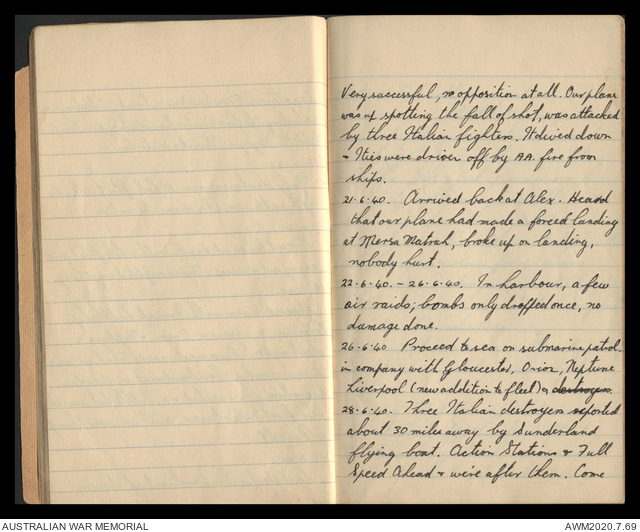 Very successful, no opposition at all. Our plane
was up spotting the fall of shot, was attacked
by three Italian fighters. It dived down
& Ities were driven off by AA. fire from
ships.
21.6.40. Arrived back at Alex. Heard
that our plane had made a forced landing
at Mersa Matruh, broke up on landing,
nobody hurt.
22.6.40. - 26.6.40. In harbour, a few
air raids; bombs only dropped once, no
damage done.
26.6.40 Proceed to sea on submarine patrol
in company with Gloucester, Orion, Neptune
Liverpool (new addition to fleet) & destroyers.
28.6.40. Three Italian destroyers reported
about 30 miles away by Sunderland
flying boat. Action Stations & Full
Speed Ahead & we're after them. Come
AUSTRALIAN WAR MEMORIAL
AWM2020.7.69